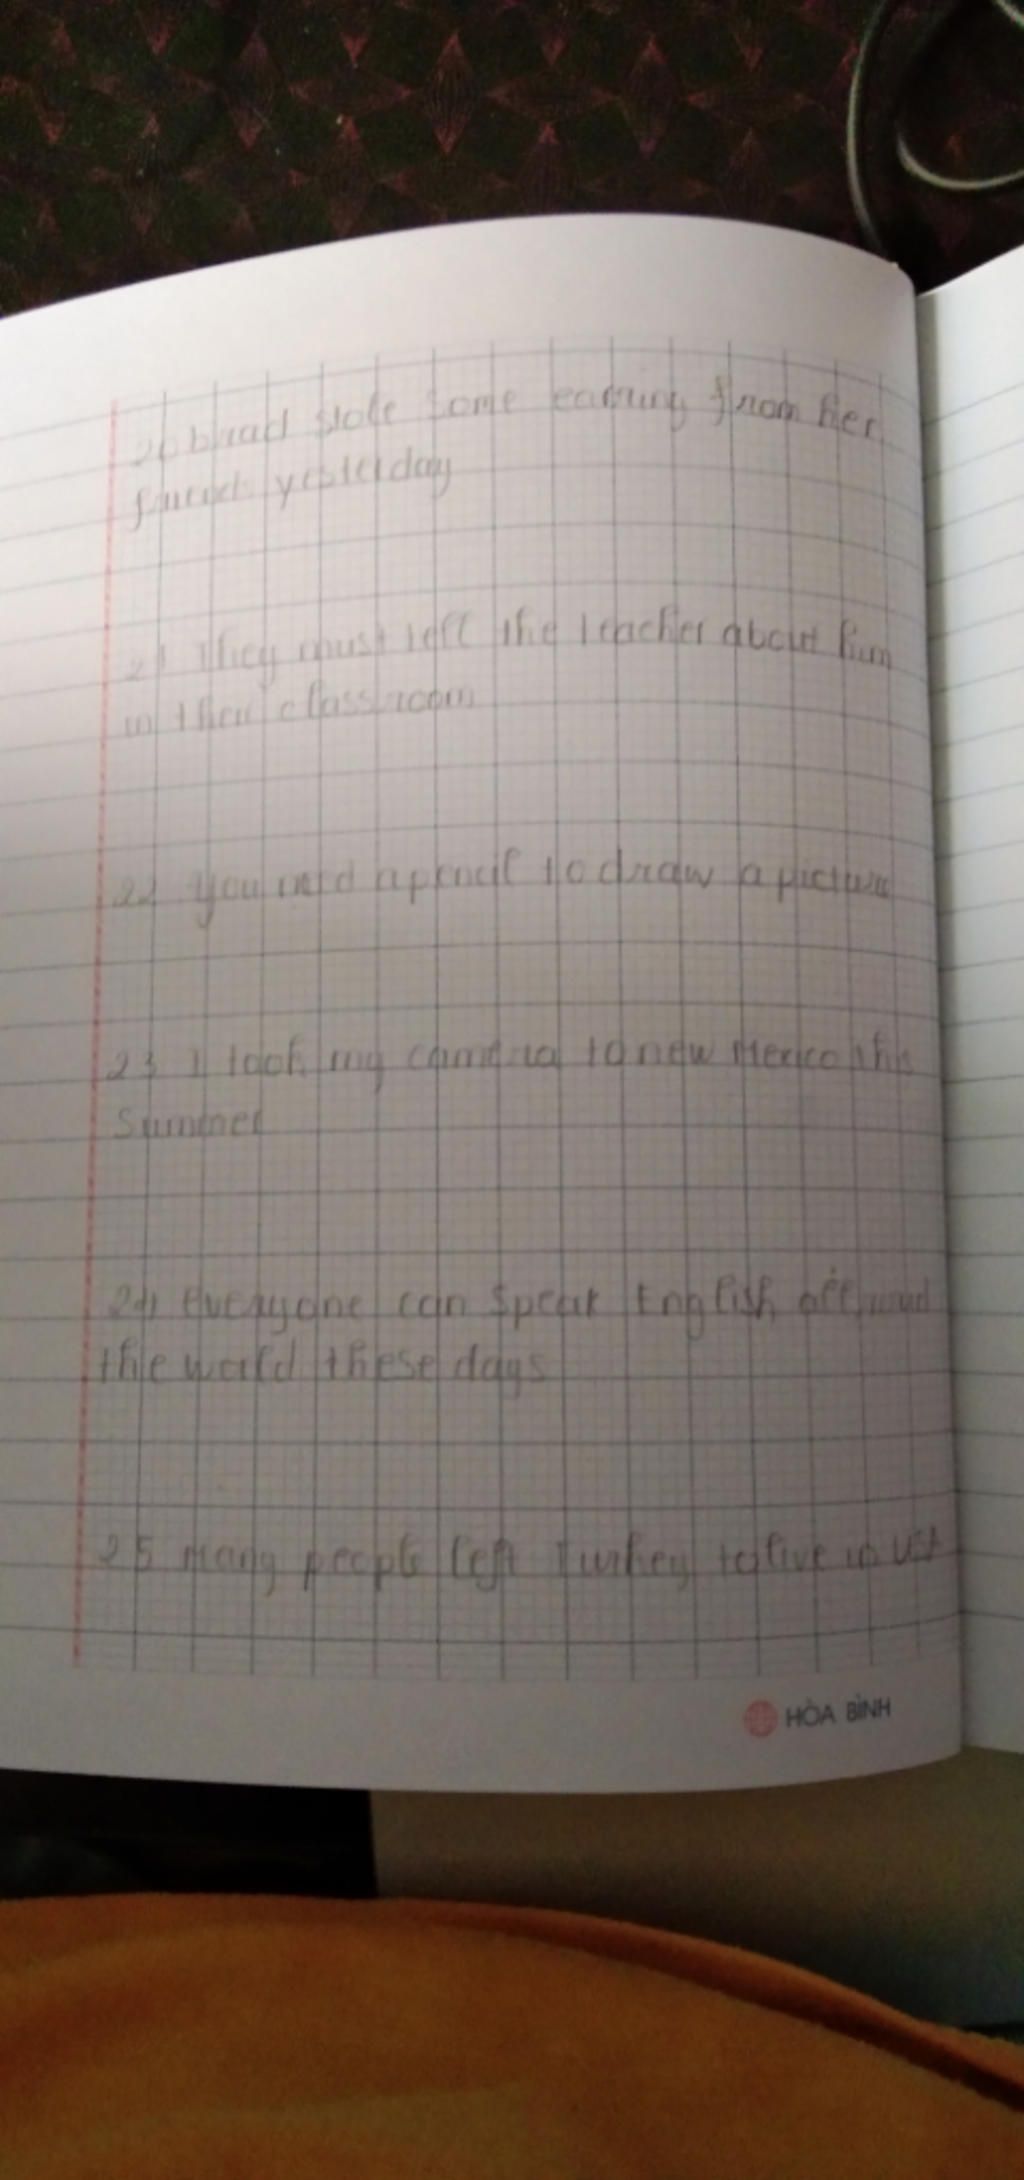 20 brad stole some earring from her
friend yesterday
21 They must tell the teacher about him
in their classroom
22 you need a pencil to draw a picture
23 I took my camera to new Mexico this
Summer
24 everyone can speak English all around
the world these days
25 Many people left Turkey to live in USA
HÒA BÌNH